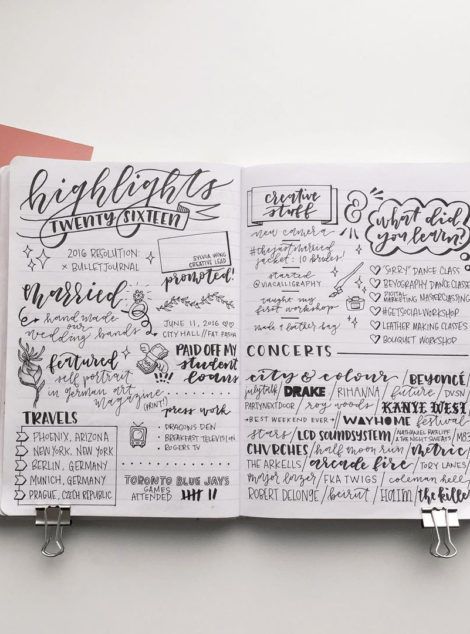 highlights
TWENTY SIXTEEN
2016 RESOLUTION
× BULLETJOURNAL
SYLVIA WONG
CREATIVE LEAD
promoted!
married
hand made
our
wedding bands
JUNE 11, 2016
CITY HALL // FAT PASHA
featured
self portrait
in german art
magazine
(PRINT!)
PAID OFF MY
student
loans
press work
DRAGONS DEN
BREAKFAST TELEVISION
ROGERS TV
TRAVELS
PHOENIX, ARIZONA
NEW YORK, NEW YORK
BERLIN, GERMANY
MUNICH, GERMANY
PRAGUE, CZECH REPUBLIC
TORONTO BLUE JAYS
GAMES
ATTENDED
creative
stuff
&
new camera
#thejustmarried
jacket: 10 brides!
started
@VIACALLIGRAPHY
taught my
first workshop!
make a leather bag
what did
you learn?
SORRY DANCE CLASS
BEYOGRAPHY DANCE CLASS
DIGITAL
MARKETING MASTERCLASS
#GETSOCIAL WORKSHOP
LEATHER MAKING CLASSES
BOUQUET WORKSHOP
CONCERTS
city & colour / BEYONCÉ
july talk / DRAKE / RIHANNA / future / DVSN
PARTYNEXTDOOR / roy woods / KANYE WEST
★BEST WEEKEND EVER★ / WAYHOME festival
stars / LCD SOUNDSYSTEM / NATHANIEL RATELIFF & THE NIGHT SWEATS /
CHVRCHES / half moon run / metric
THE ARKELLS / arcade fire / TORY LANEZ
major lazer / FKA TWIGS / coleman hell
ROBERT DELONGE / beirut / HAIM / the kille